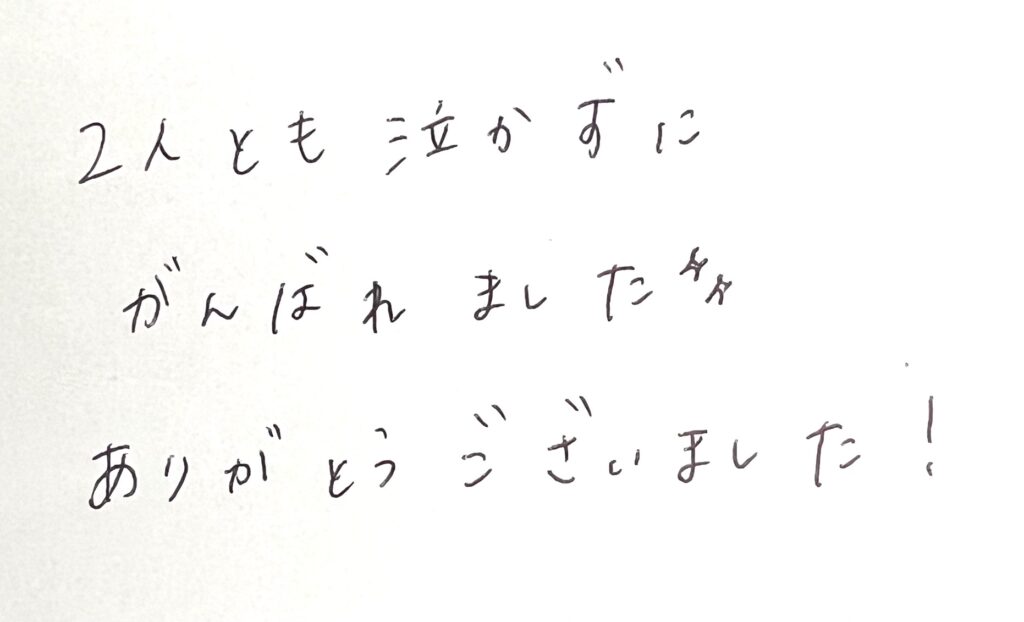 2人とも泣かずに
がんばれました☆☆
ありがとうございました!